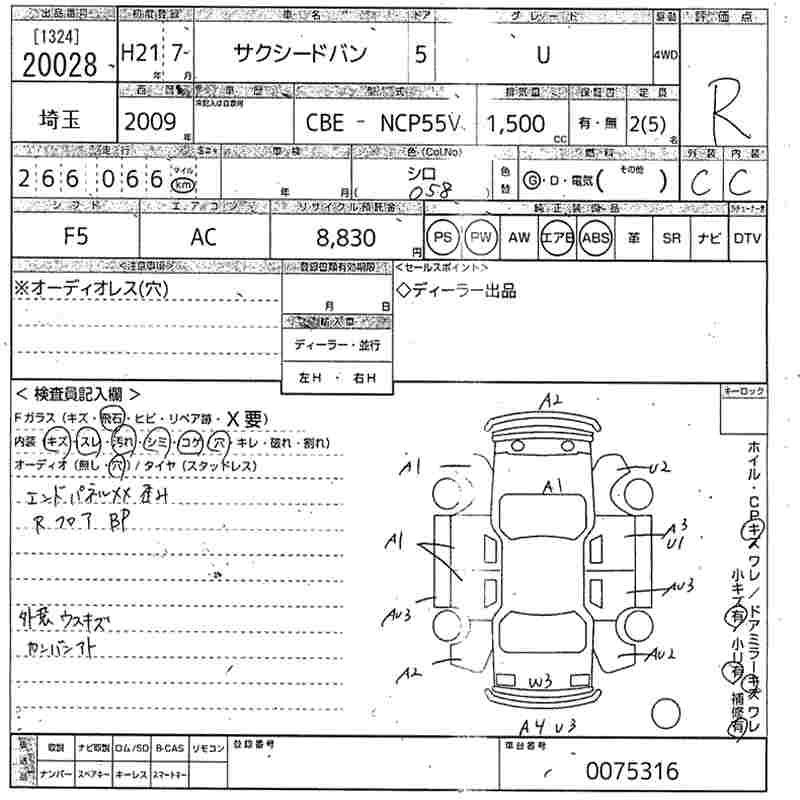 出品番号 初度登録 車名 ドア グレード 駆動 評価点
[1324]
20028 H21 7- サクシードバン 5 U 4WD R
年 月
西暦 車歴 型式 排気量 保証書 定員
未記入は自家用
埼玉 2009年 CBE - NCP55V 1,500cc 有・無 2(5)名
走行 車検 色(Col.No) 燃料 外装 内装
266066 マイル km 年 月 シロ ( 058 ) 色替 G・D・電気( その他 ) C C
シフト エアコン リサイクル預託金 純正装備品
F5 AC 8,830円 PS PW AW エアB ABS 革 SR ナビ DTV
<注意事項> 登録書類有効期限 <セールスポイント>
※オーディオレス(穴) 月 日 ◇ディーラー出品
輸入車
ディーラー・並行
左H ・ 右H
< 検査員記入欄 > キーロック
Fガラス (キズ・飛石・ヒビ・リペア跡・X要)
内装 (キズ・スレ・汚れ・シミ・コゲ・穴・キレ・破れ・割れ)
オーディオ (無し・穴) / タイヤ (スタッドレス)
エンドパネルXX 歪み
Rフロア BP
外装 ウスキズ
カンバンアト
A2
A1 U2
A1
A1 A3 U1
AU3 AU3
A2 AU2
W3
A4 U3
ホイル・CPキズワレ/ドアミラーキズワレ
小キズ有/小U有 補修有
後送品 取説 ナビ取説 ロム/SD B-CAS リモコン 登録番号 車台番号
ナンバー スペアキー キーレス スマートキー 0075316